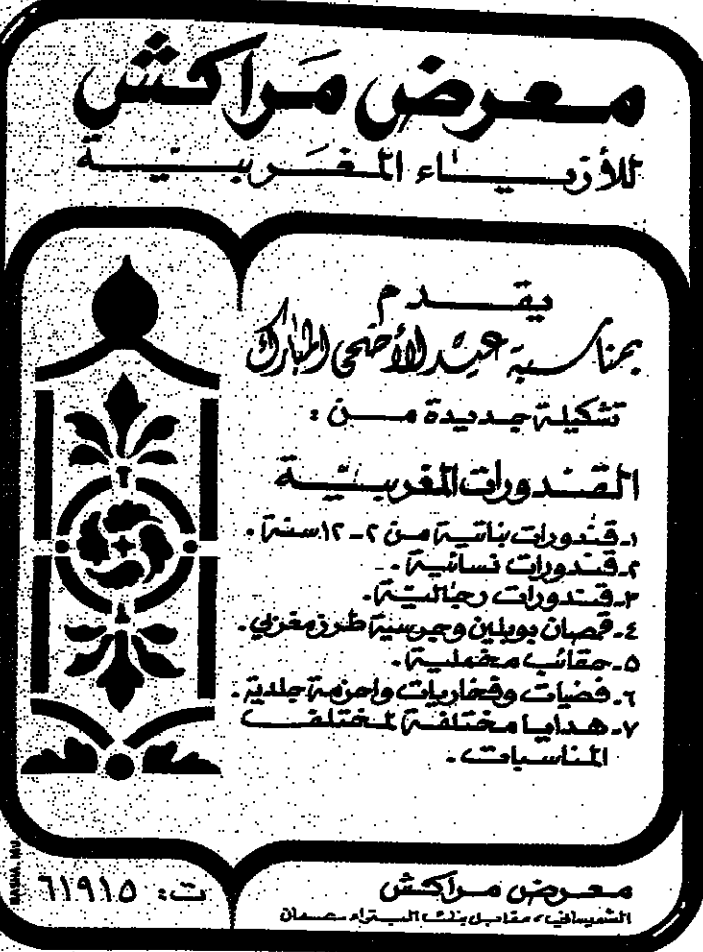 معرض مراكش
للأزياء المغربية
يقدم
بمناسبة عيد الأضحى المبارك
تشكيلة جديدة من :
القندورات المغربية
١- قندورات بناتية من ٢ - ١٢ سنة .
٢- قندورات نسائية .
٣- قندورات رجالية .
٤- قمصان بوبلين وجرسية طرز مغربي .
٥- حقائب مخملية .
٦- فضيات وفخاريات واحزمة جلدية .
٧- هدايا مختلفة لمختلف
المناسبات .
معرض مراكش
الشميساني، مقابل بنك البتراء - عمان
ت : ٦١٩١٥